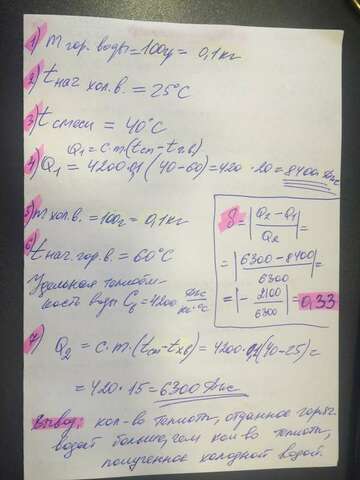 1) m гор. воды = 100г = 0,1 кг
2) t нач хол. в. = 25°C
3) t смеси = 40°C
Q₁ = c·m·(tсм - tг.в)
4) Q₁ = 4200·0,1 (40-60) = 420 · 20 = 8400 Дж
5) m хол. в. = 100г = 0,1 кг
6) t нач. гор. в = 60°C
Удельная теплоём-
кость воды Cв = 4200 Дж/кг·°C
δ = |Q₂ - Q₁ / Q₂| =
= |6300 - 8400 / 6300| =
= |- 2100 / 6300| = 0,33
7) Q₂ = c·m·(tсм - tхв) = 4200·0,1(40-25) =
= 420 · 15 = 6300 Дж
Вывод: кол-во теплоты, отданное горяч.
водой больше, чем кол-во теплоты,
полученное холодной водой.